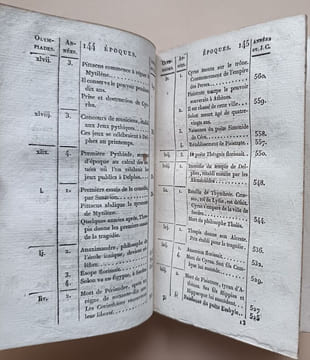 OLYM-
PIADES.
AN-
NÉES.
144 ÉPOQUES.
xlvij.
3.
Pittacus commence à régner à
Mytilène.
Il conserve le pouvoir pendant
dix ans.
Prise et destruction de
xlviij.
3.
Concours de musiciens, établi
aux Jeux pythiques.
Ces jeux se célébroient à Del-
phes au printemps.
xlix.
4.
Première Pythiade,
d'époque au calcul des
rés où l'on célébroit les
jeux publics à Delphes.
l.
1.
Premiers essais de la comédie,
par Susarion.
2.
Pittacus abdique la tyrannie
de Mytilène.
Quelques années après, Thes-
pis donne les premiers essais
de la tragédie.
lj.
2.
Anaximandre, philosophe de
l'école ionique, devient cé-
lèbre.
3.
Esope florissoit.
4.
Solon va en Egypte, à Sardes.
liv.
2.
Mort de Périandre, après un
règne de soixante-dix ans.
Les Corinthiens recouvrent
leur liberté.
ÉPOQUES. 145
ANNÉES
av. J. C.
Cyrus monte sur le trône.
Commencement de l'empire
des Perses.
560.
Pisistrate usurpe le pouvoir
souverain à Athènes.
Il est chassé de cette ville.
Solon meurt âgé de quatre-
vingts ans.
559.
Naissance du poëte Simonide
de Céos.
558.
Rétablissement de Pisistrate.
557.
Le poëte Théognis florissoit.
550.
Incendie du temple de Del-
phes, rétabli ensuite par les
Alcméonides.
548.
Bataille de Thymbrée. Cré-
sus, roi de Lydie, est défait.
Cyrus s'empare de la ville
de Sardes.
Mort du philosophe Thalès.
544.
Thespis donne son Alceste.
Prix établi pour la tragédie.
536.
Anacréon florissoit.
Mort de Cyrus. Son fils Cam-
byse lui succède.
529.
Mort de Pisistrate, tyran d'A-
thènes. Ses fils Hippias et
Hipparque lui succèdent.
527
Naissance du poëte Eschyle.
525
13